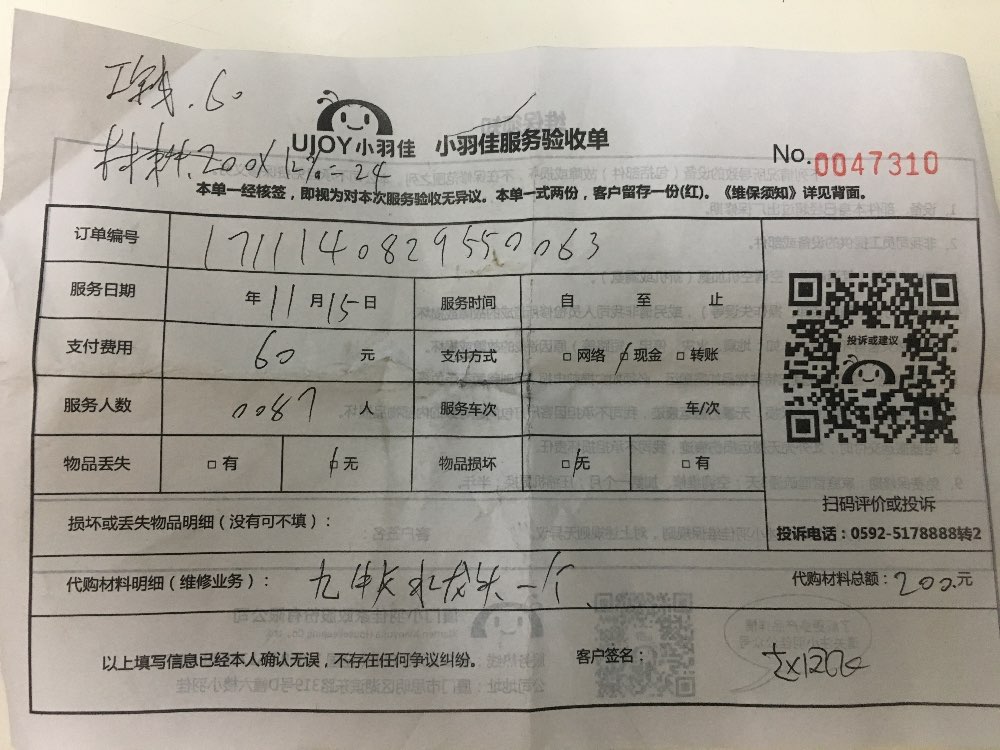 工钱.60
UJOY小羽佳 小羽佳服务验收单
材料.200×12%=24
No.0047310
本单一经核签，即视为对本次服务验收无异议。本单一式两份，客户留存一份(红)。《维保须知》详见背面。
订单编号 1711140829550063
服务日期 年11月15日 服务时间 自 至 止
支付费用 60 元 支付方式 □网络 □现金 □转账
投诉或建议
服务人数 0087 人 服务车次 车/次
物品丢失 □有 □无 物品损坏 □无 □有
扫码评价或投诉
损坏或丢失物品明细（没有可不填）：
投诉电话：0592-5178888转2
代购材料明细（维修业务）： 九牧水龙头一个 代购材料总额：200.元
以上填写信息已经本人确认无误，不存在任何争议纠纷。 客户签名：